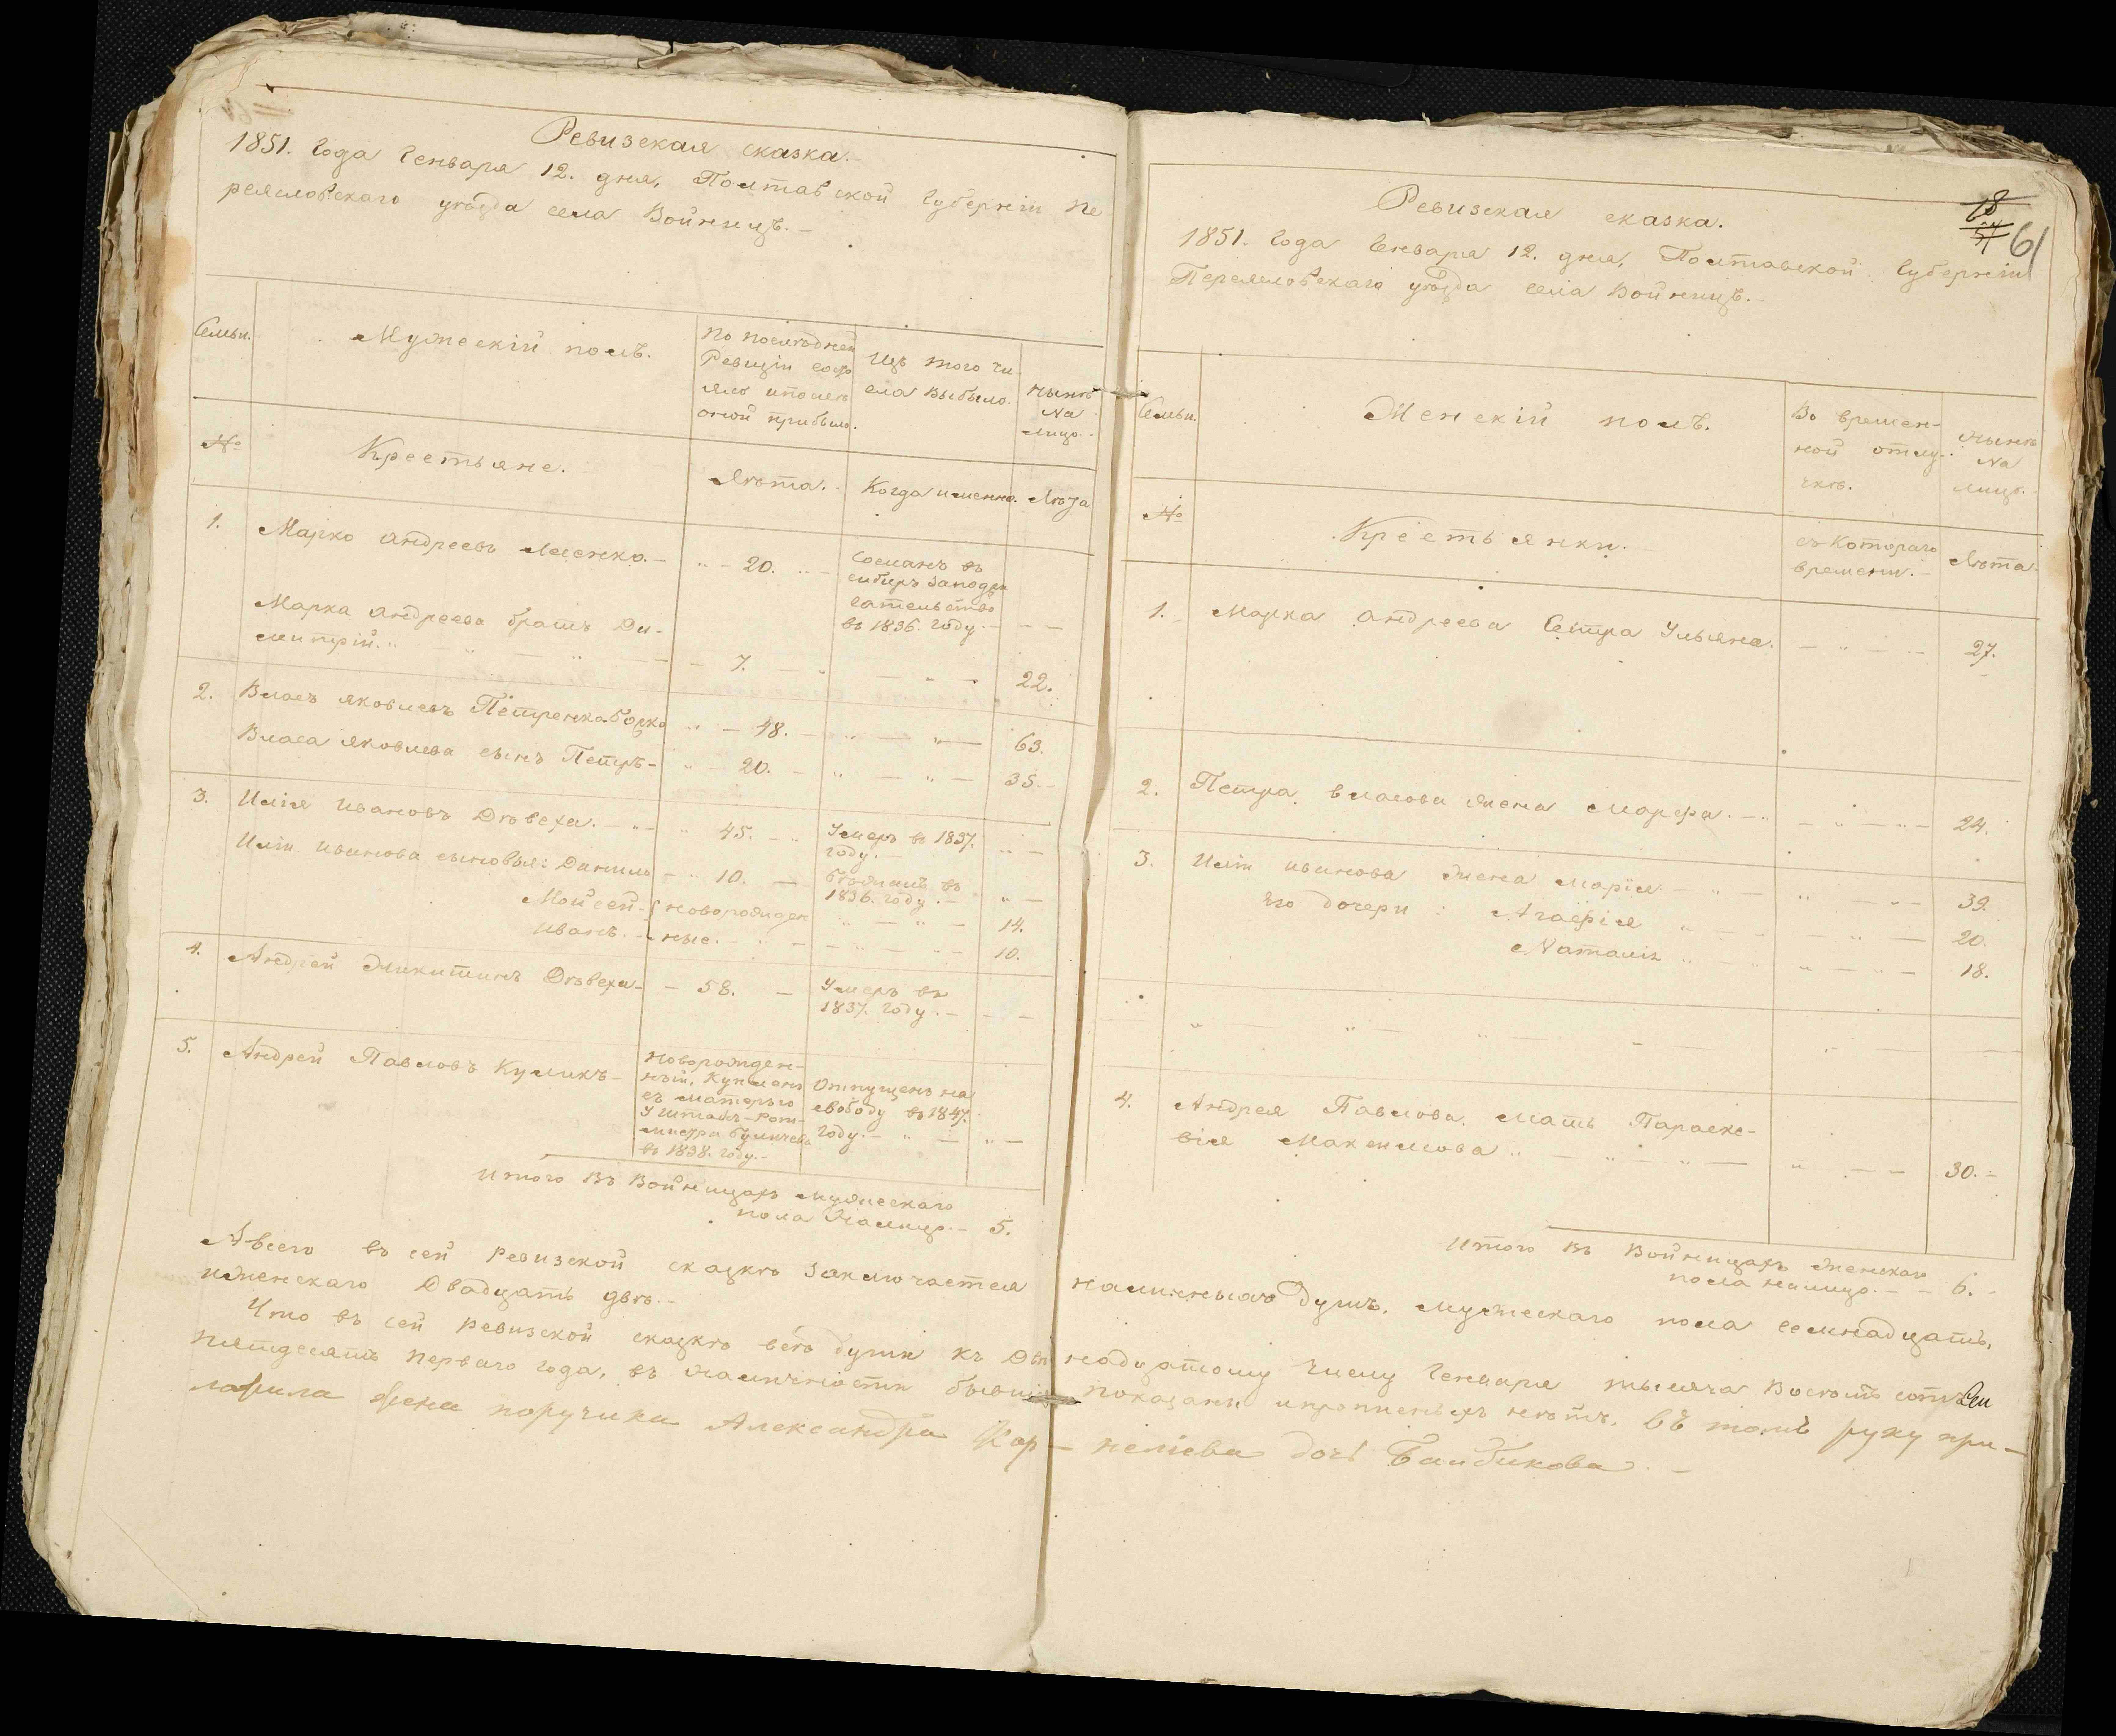 Ревизская сказка.
1851. Года Генваря 12. дня, Полтавской Губерніи Пе
реясловскаго уѣзда села Войницъ.
Семьи.
Мужескій полъ.
По послѣдней
Ревизіи состо
ялъ и послѣ
оной прибыло.
Изъ того чи-
сла выбыло.
Нынѣ
на
лицо.
№
Крестьяне.
Лѣта.
Когда именно.
Лѣта
1.
Марко Андреевъ
20.
Сосланъ въ
сибиръ за
въ 1836. году.
Марка Андреева братъ Ди-
митрій.
7.
22.
2.
Власъ Яковлевъ Петренко-Бойко
48.
63.
Власа Яковлева сынъ Петръ
20.
35.
3.
Илія Ивановъ Дѣвеха.
45.
Умеръ въ 1837.
году.
Иліи Иванова сыновья: Данило
10.
бѣжалъ въ
1836. году.
Мойсей
новорожден
14.
Иванъ.
ные.
10.
4.
Андрей Никитинъ Дѣвеха
58.
Умеръ въ
1837. году.
5.
Андрей Павловъ Куликъ
новорожден-
ный, Купленъ
съ матерью
у штабъ-Рот-
мистра
въ 1838. году.
Отпущенъ на
свободу въ 1847.
году.
Итого Въ Войницахъ мужескаго
пола налицо. 5.
Ревизская сказка.
18
57
61
1851. Года Генваря 12. дня, Полтавской Губерніи
Переясловскаго уѣзда села Войницъ.
Семьи.
Женскій полъ.
Во времен-
ной отлу-
чкѣ.
Нынѣ
на
лицо.
№
Крестьянки.
съ Котораго
времени.
Лѣта.
1.
Марка Андреева Сестра Ульяна.
27.
2.
Петра Власова жена Марфа.
24.
3.
Иліи Иванова жена Марія
39.
Его дочери: Агафія
20.
Наталія
18.
4.
Андрея Павлова, мать Параске-
вія Максимова
30.
Итого Въ Войницахъ женскаго
пола налицо. 6.
А всего въ сей Ревизской сказкѣ заключается наличныхъ душъ, мужескаго пола семнадцать,
и женскаго Двадцать двѣ.
Что въ сей ревизской сказкѣ всѣ души къ Двѣ надцатому числу Генваря тысяча Восемъ сотъ
пятдесятъ перваго года, въ наличности бывшія показаны и прописныхъ нѣтъ. Въ томъ руку при-
ложила жена поручика Александра Кор-неліева дочь Байбикова.